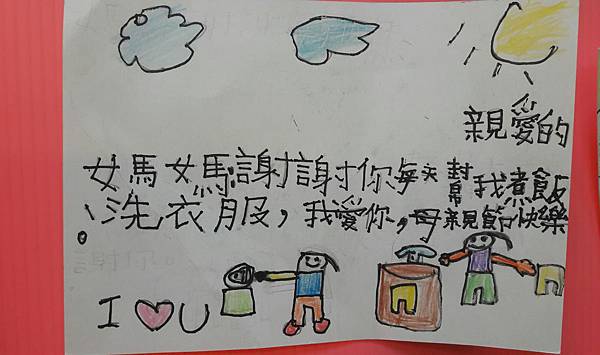 親愛的
媽媽謝謝你每天幫我煮飯
、洗衣服，我愛你，母親節快樂
。
I ♥ U